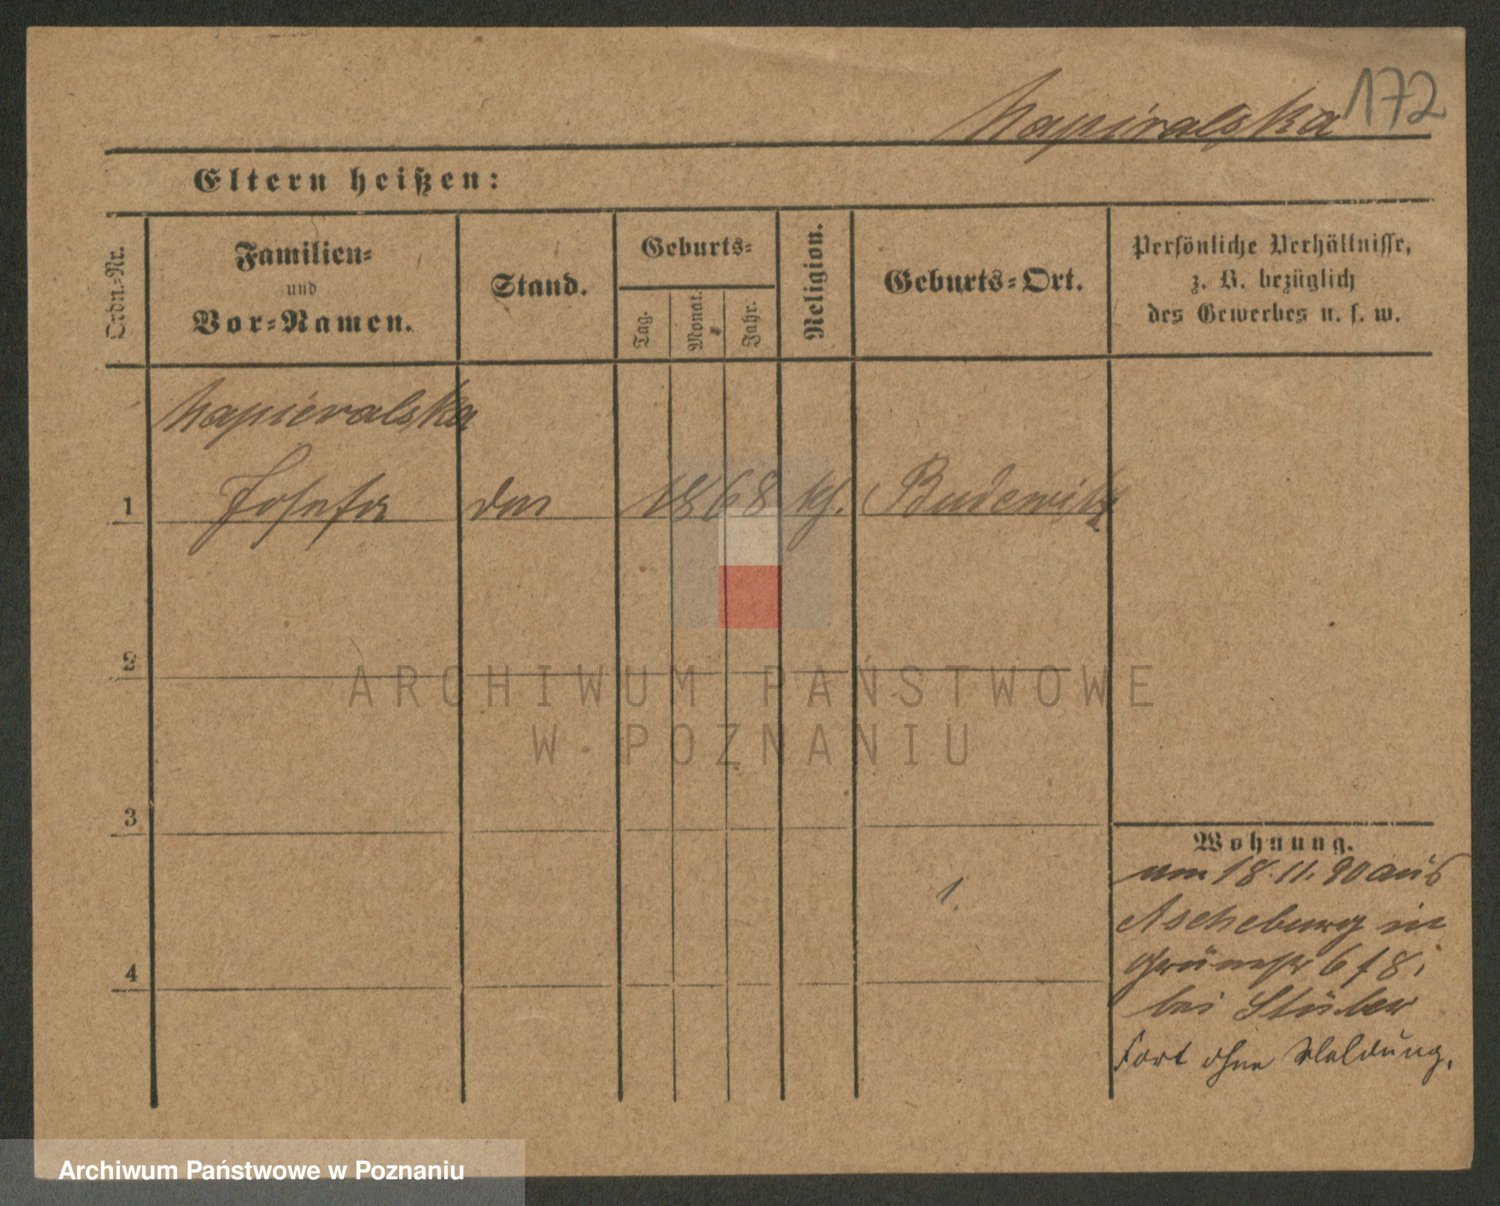 Napieralska 172
Eltern heißen:
Ordn.-Nr.
Familien-
und
Vor-Namen.
Stand.
Geburts-
Tag.
Monat.
Jahr.
Religion.
Geburts-Ort.
Persönliche Verhältnisse,
z. B. bezüglich
des Gewerbes u. s. w.
Napieralska
1 Josefa 1868 kth. Budewitz
2
3
4
1.
Wohnung.
vom 18.11.90 aus
Ascheburg in
Grünestr 6 f 8.
bei Stüber
Fort ohne Meldung.
ARCHIWUM PAŃSTWOWE
W POZNANIU
Archiwum Państwowe w Poznaniu